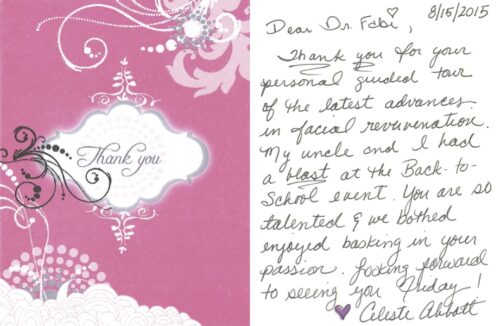 Thank you
8/15/2015
Dear Dr. Fabi,
Thank you for your
personal guided tour
of the latest advances
in facial revuvenation.
My uncle and I had
a blast at the Back-to-
School event. You are so
talented & we bothed
enjoyed basking in your
passion. Looking forward
to seeing you Friday!
Celeste Abbott